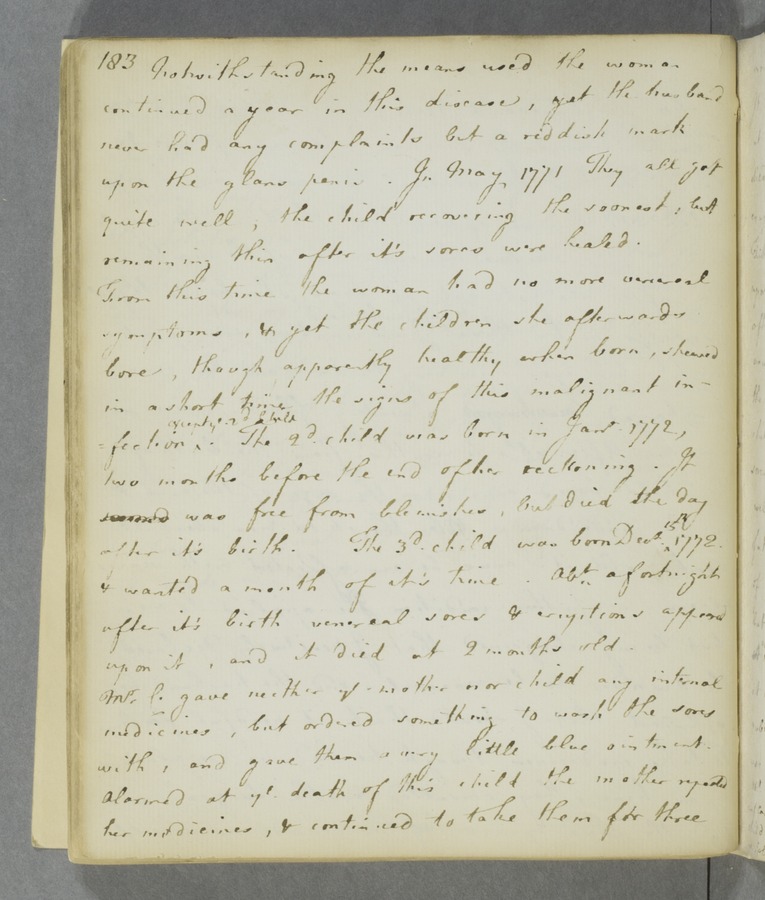 183 Notwithstanding the means used the woman
continued a year in this disease, yet the husband
never had any complaints but a reddish mark
upon the glans penis. In May 1771 They all got
quite well, the child recovering the soonest; but
remaining thin after it's sores were healed.
From this time the woman had no more venereal
symptoms, & yet the children she afterwards
bore, though apparently healthy when born, shewed
in a short time the signs of this malignant in-
except ye 2d child
=fection. The 2d. child was born in Janr. 1772,
two months before the end of her reckoning. It
was free from blemishes, but died the day
15th
after it's birth. The 3d. child was born Decr. 1772.
& wanted a month of it's time. Abt. a fortnight
after it's birth venereal sores & eruptions appeard
upon it, and it died at 2 months old.
Mr. C. gave neither ye. mother nor child any internal
medicines, but ordered something to wash the sores
with, and gave them a very little blue ointment.
Alarmed at ye. death of this child the mother repeated
her medicines, & continued to take them for three